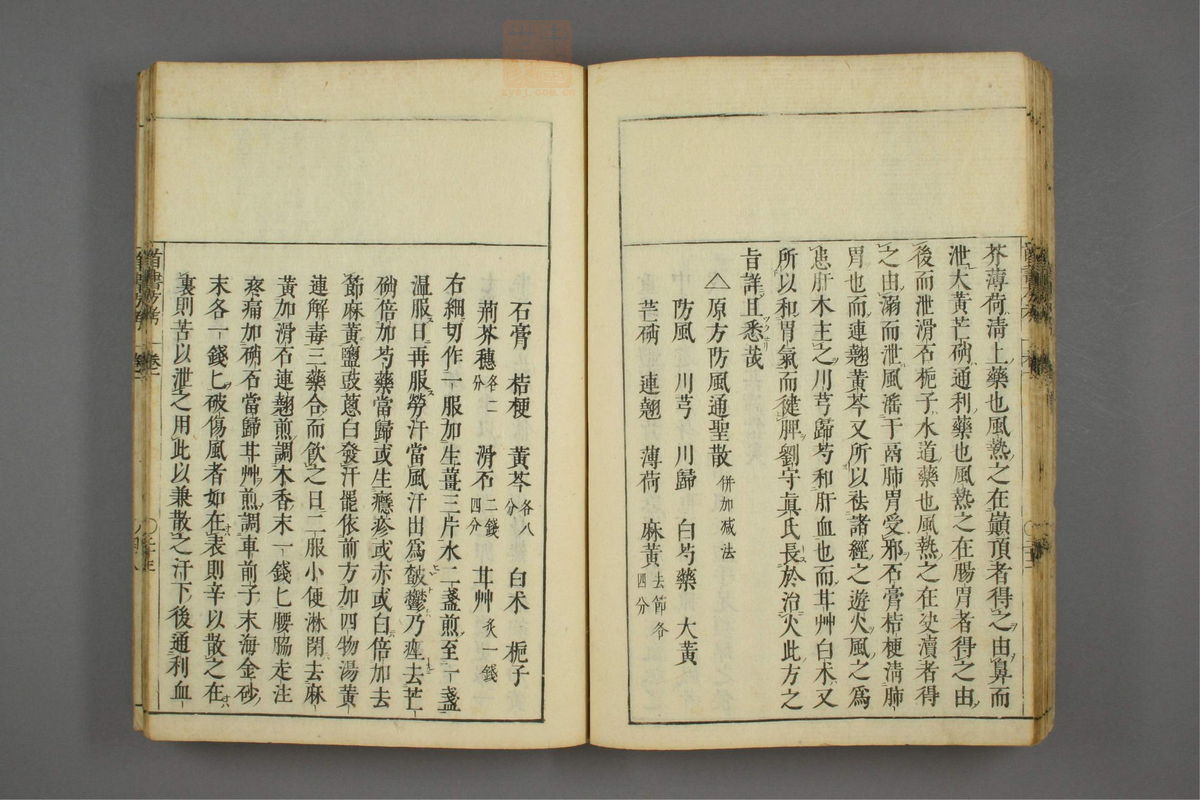 芥薄荷淸上藥也風熱之在巔頂者得之由鼻而
泄大黃芒硝通利藥也風熱之在腸胃者得之由
後而泄滑石梔子水道藥也風熱之在决瀆者得
之由溺而泄風淫于鬲肺胃受邪石膏桔梗淸肺
胃也而連翹黃芩又所以祛諸經之遊火風之爲
患肝木主之川芎歸芍和肝血也而甘艸白朮又
所以和胃氣而健脾劉守眞氏長於治火此方之
旨詳且悉哉
△原方防風通聖散 併加减法
防風 川芎 川歸 白芍藥 大黃
芒硝 連翹 薄荷 麻黃去節各四分
石膏 桔梗 黃芩各八分 白朮 梔子
荊芥穗各二分 滑石二錢四分 甘艸炙一錢
右細切作一服加生薑三片水二盞煎至一盞
温服日再服勞汗當風汗出爲皶鬱乃痤去芒
硝倍加芍藥當歸或生癮疹或赤或白倍加去
節麻黃鹽豉蔥白發汗罷依前方加四物湯黃
連解毒三藥合而飮之日二服小便淋閉去麻
黃加滑石連翹煎調木香末一錢匕腰脇走注
疼痛加硝石當歸甘艸煎調車前子末海金砂
末各一錢匕破傷風者如在表則辛以散之在
裏則苦以泄之用此以兼散之汗下後通利血